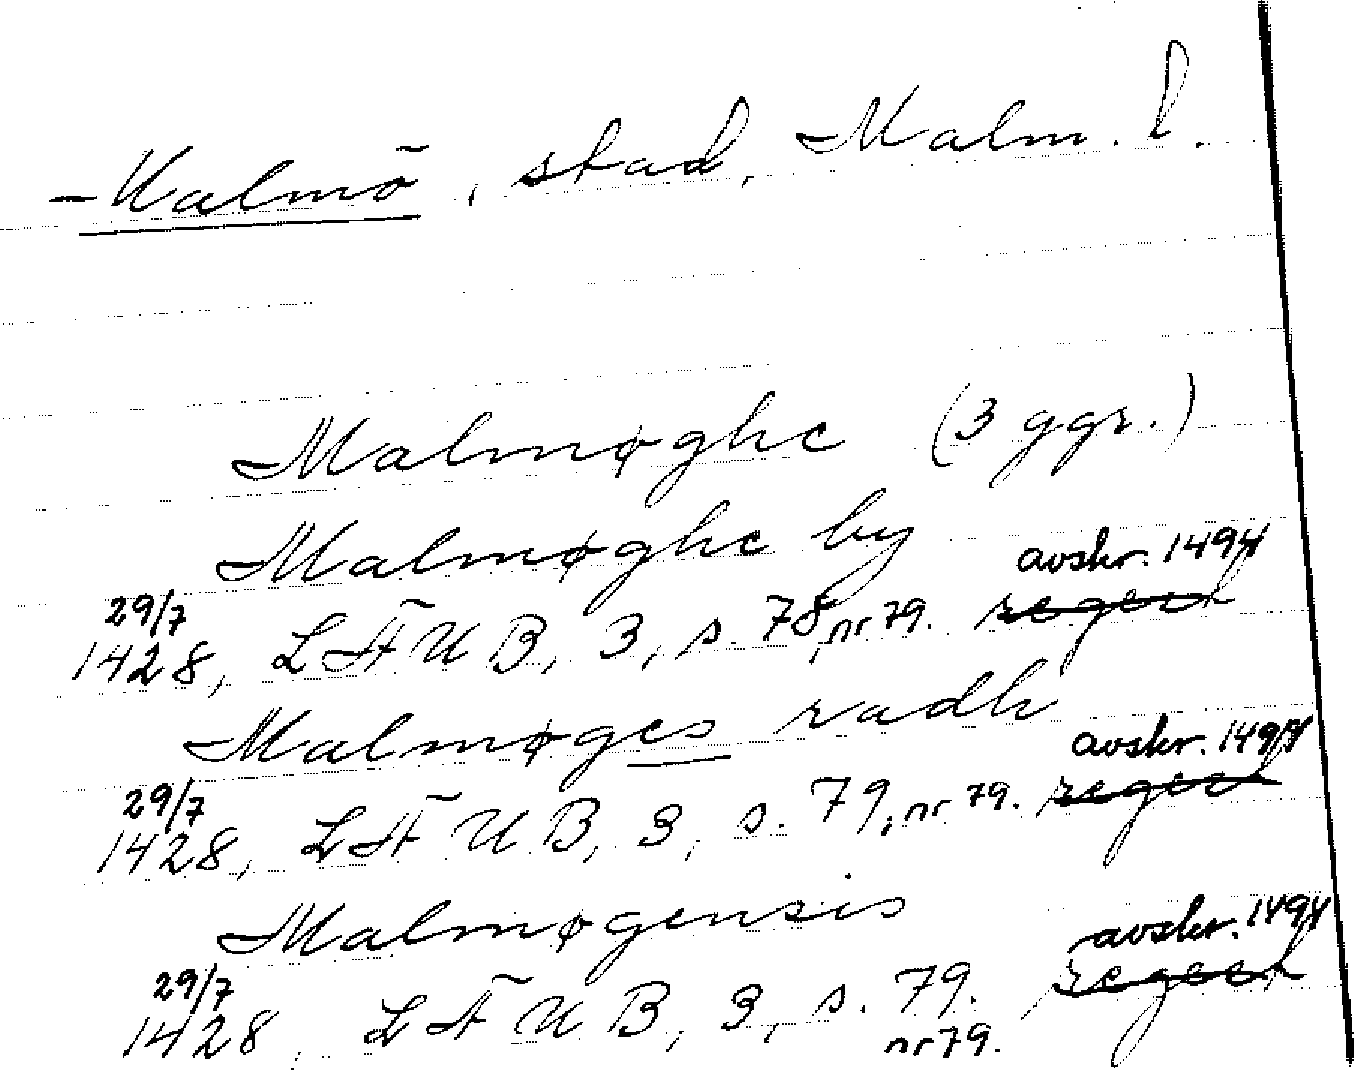 Malmö, stad, Malm. l.
Malmøghe (3 ggr.)
Malmøghe by
avskr. 1494
29/7
1428, LÄUB, 3, s. 78, nr 79. regest
Malmøges radh
avskr. 1494
29/7
1428, LÄUB, 3, s. 79, nr 79. regest
Malmøgensis
avskr. 1494
29/7
1428, LÄUB, 3, s. 79. regest
nr 79.